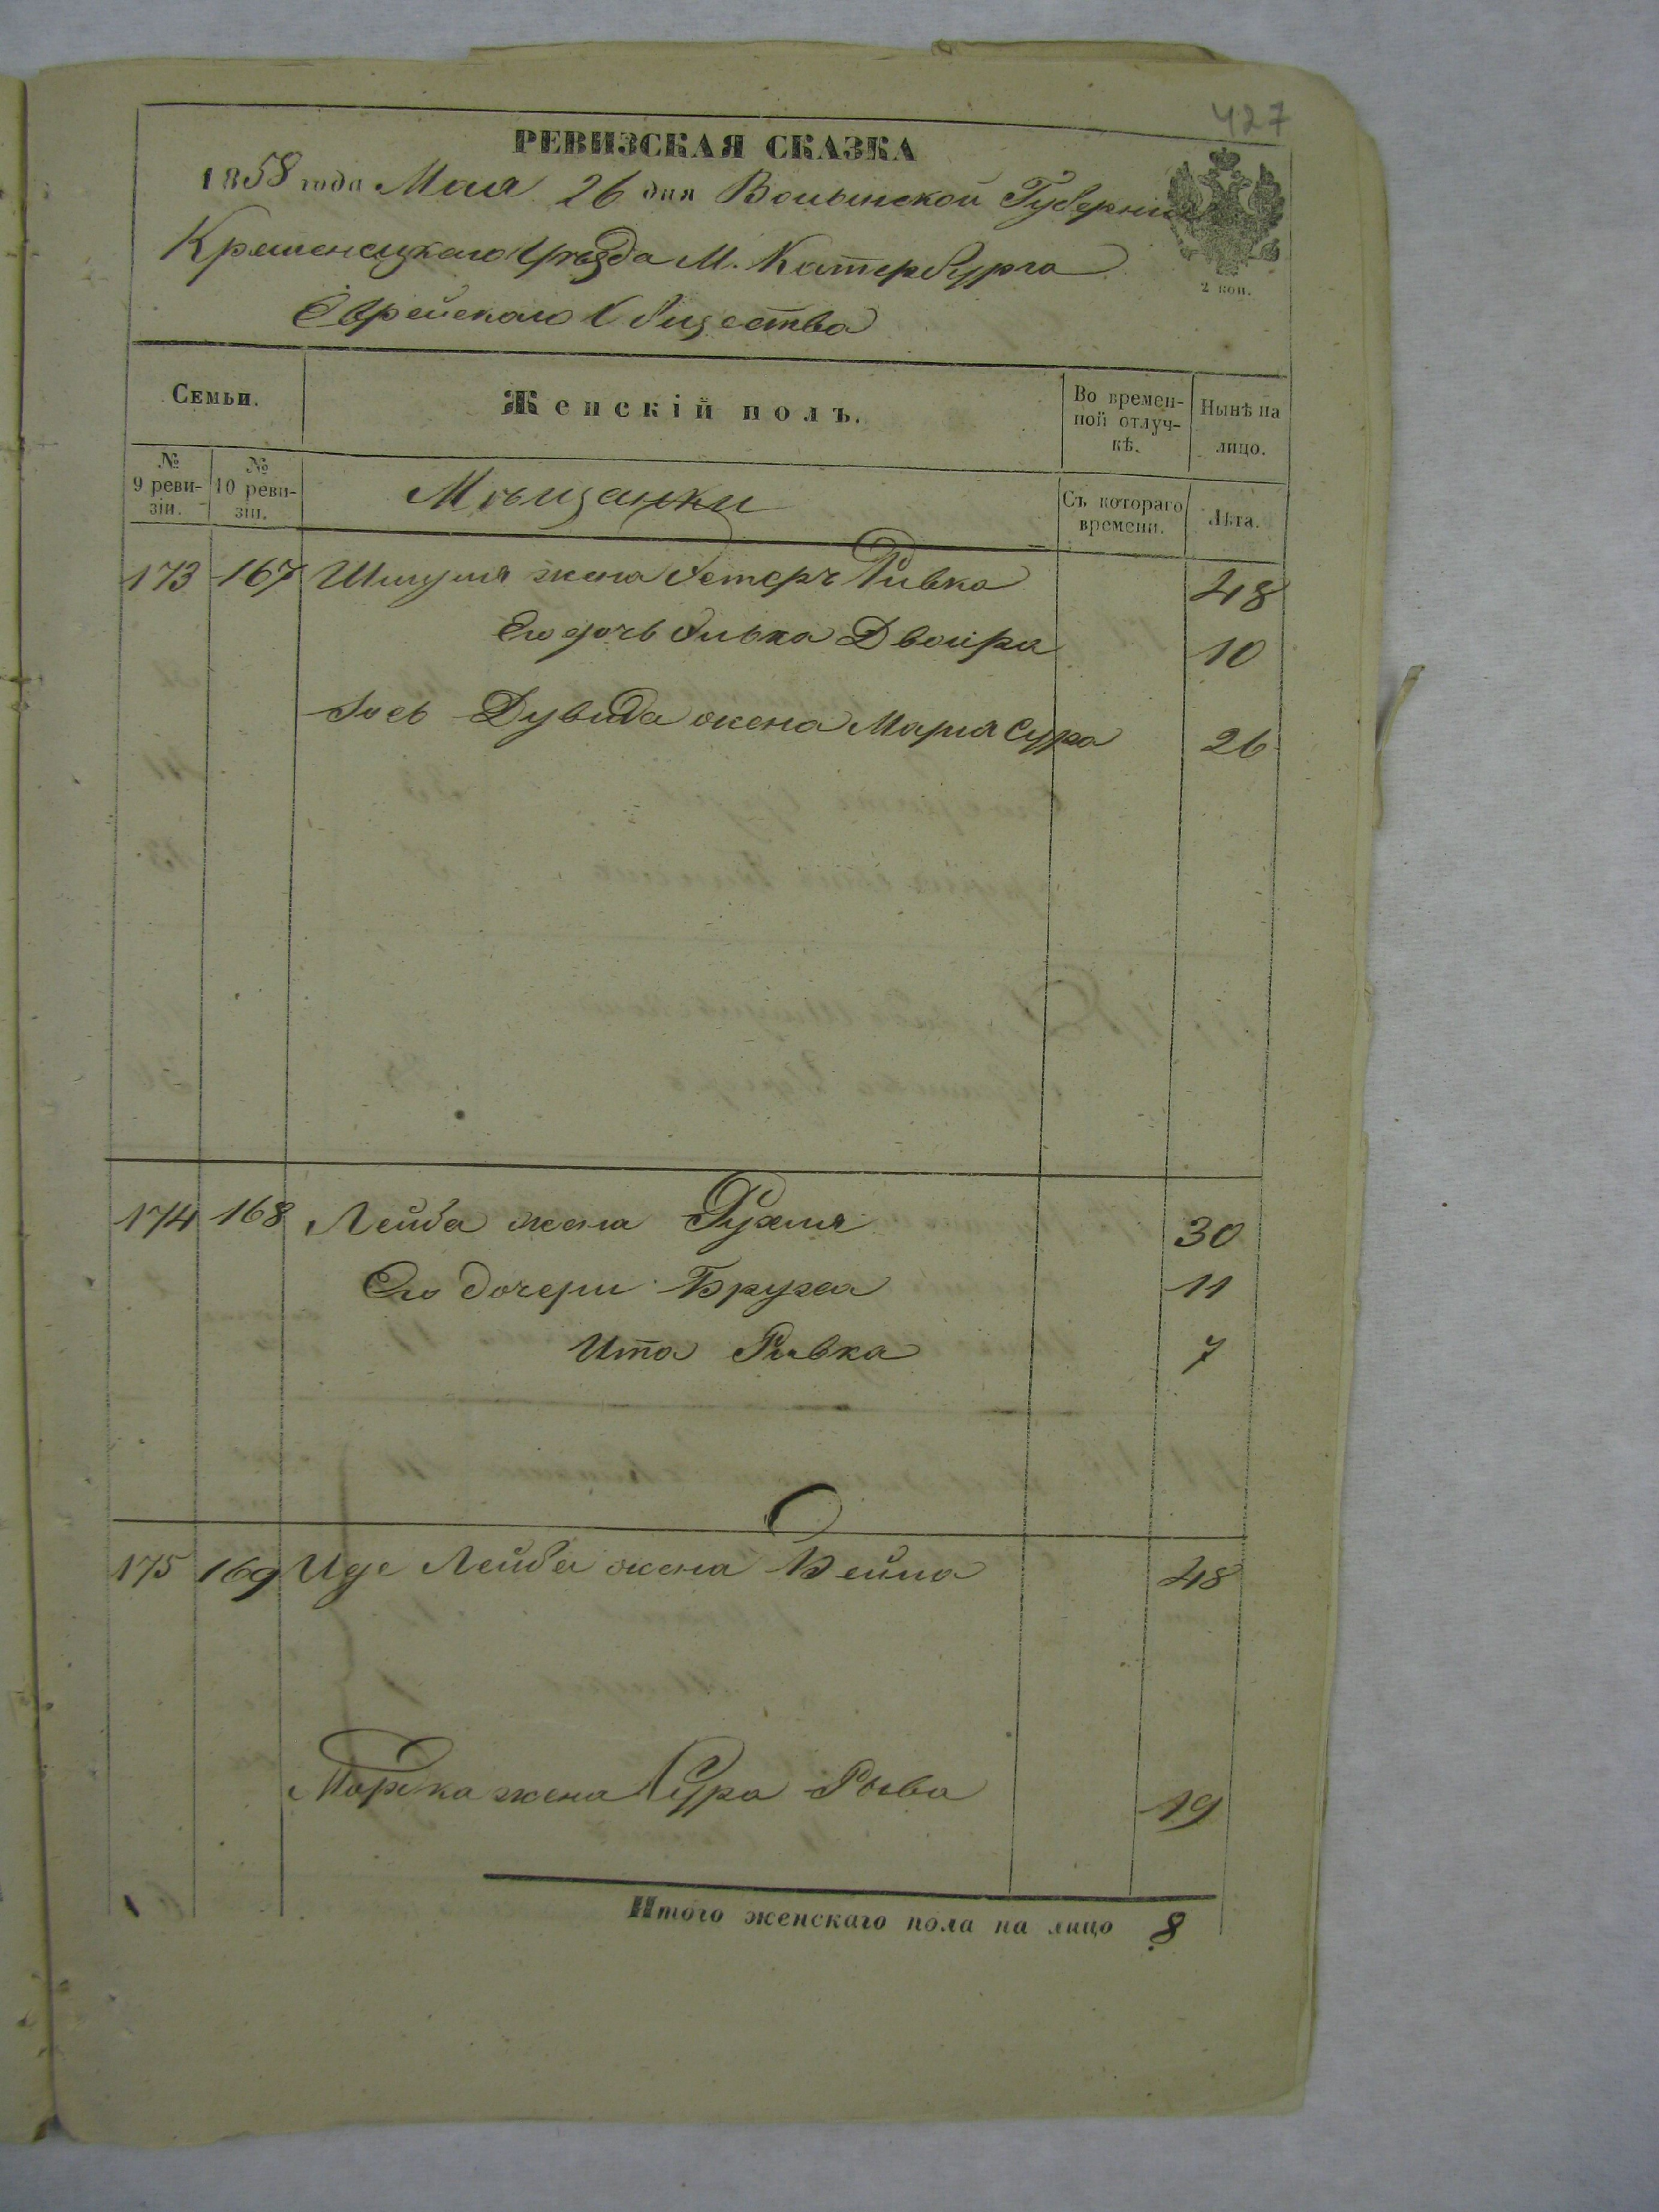 427
РЕВИЗСКАЯ СКАЗКА
1858 года Мая 26 дня Волынской Губернии
Кременецкаго Уѣзда М. Катербурга
Еврейскаго Общества
2 коп.
Семьи.
Женскій полъ.
Во времен-
ной отлуч-
кѣ.
Нынѣ на
лицо.
№
9 реви-
зіи.
№
10 реви-
зіи.
Мѣщанки
Съ котораго
времени.
Лѣта.
173 167 Шмуля жена Эстеръ Ривка 48
Его дочь Двойра 10
Дувида жена Мария Сура 26
174 168 Лейба жена Рухля 30
Его дочери Бруха 11
Ита Ривка 7
175 169 Иде Лейба жена Бейла 48
жена Сура Рыва 19
Итого женскаго пола на лицо 8